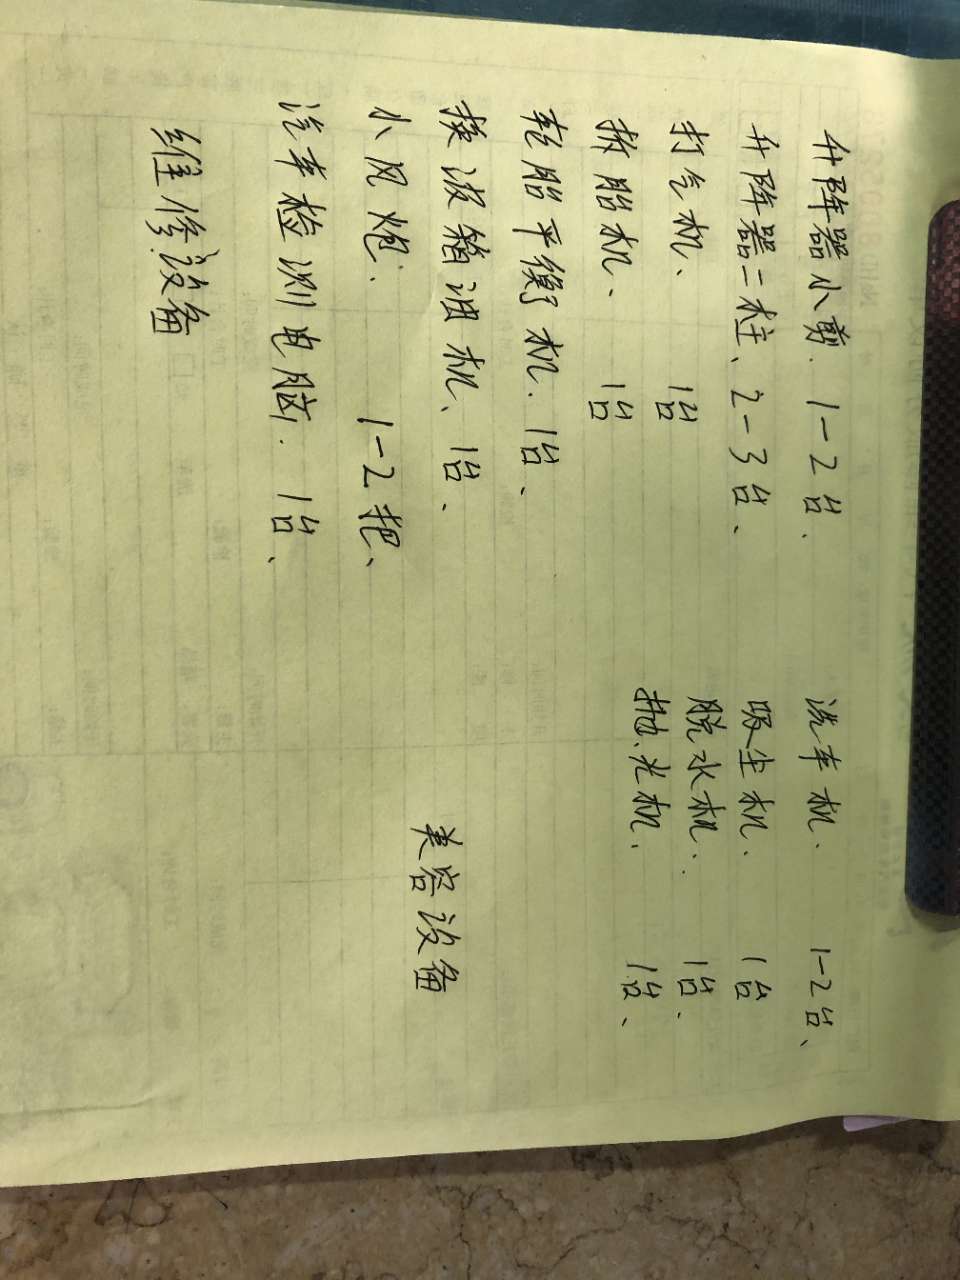 升降器小剪. 1-2台.
升降器二柱、2-3台、
打气机、 1台
拆胎机、 1台
轮胎平衡机. 1台、
换波箱油机、1台、
小风炮. 1-2把、
汽车检测电脑. 1台、
维修设备
洗车机. 1-2台、
吸尘机. 1台
脱水机. 1台.
抛光机. 1台、
美容设备